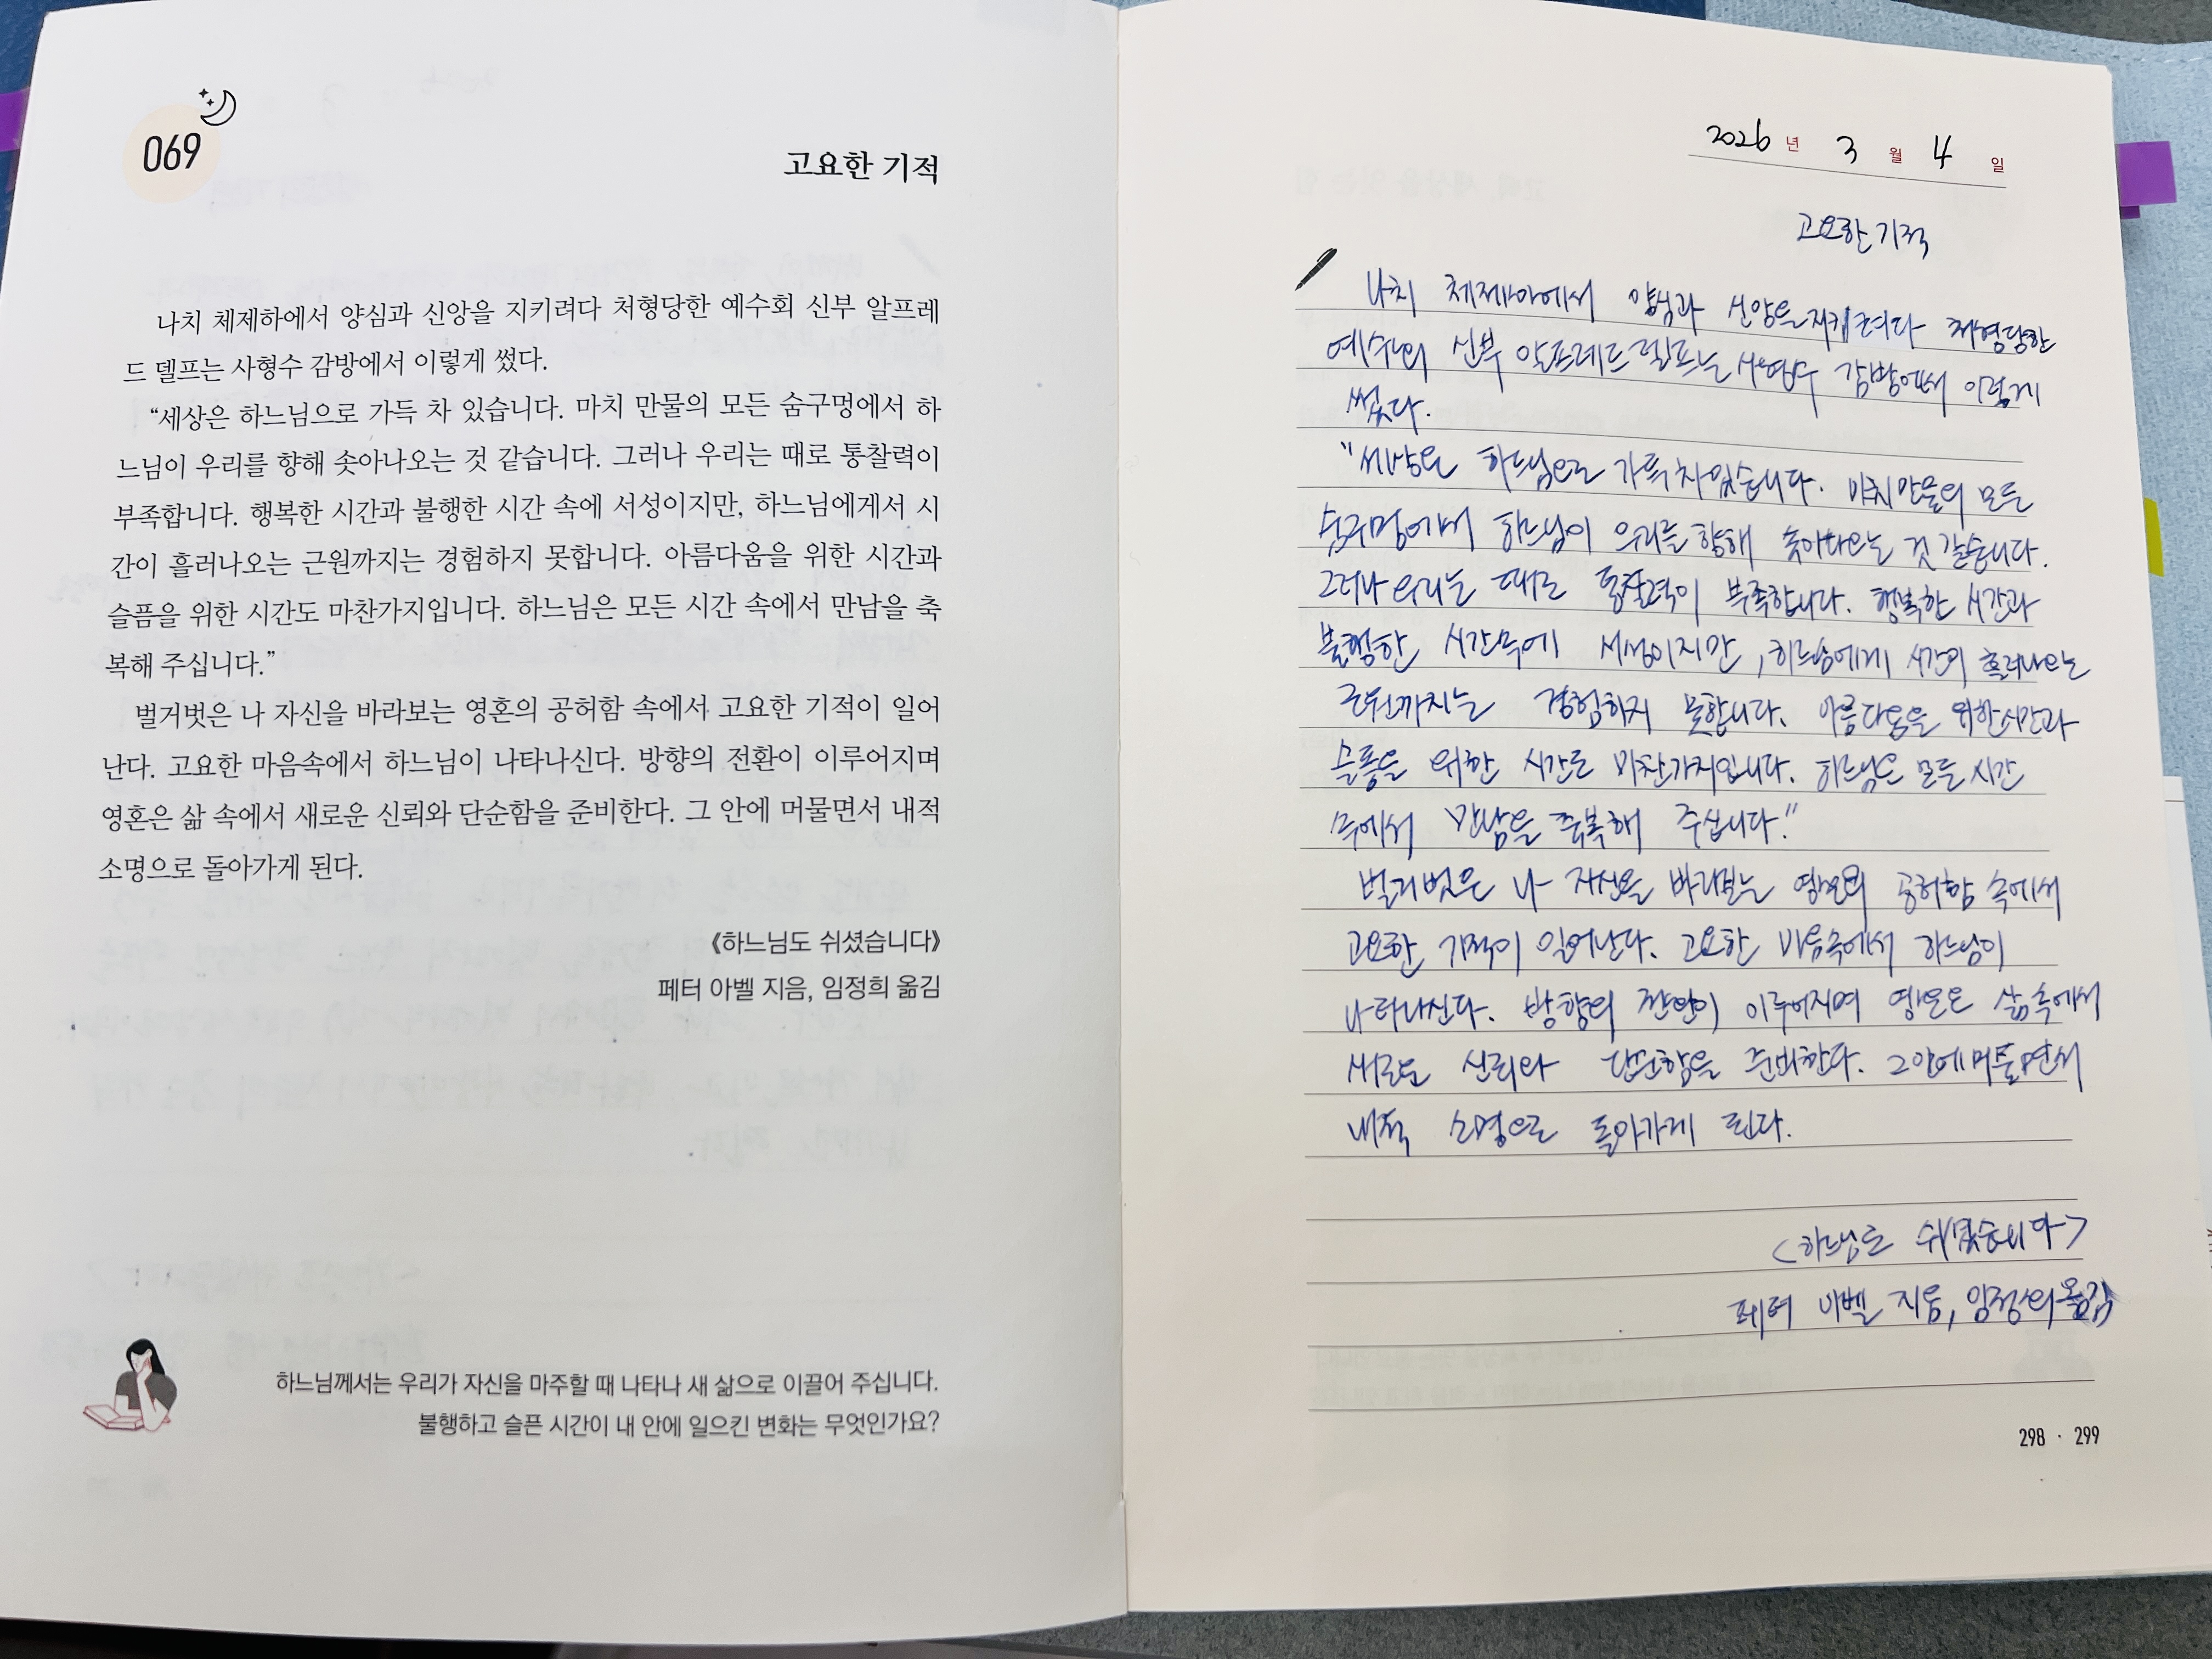 069
고요한 기적
나치 체제하에서 양심과 신앙을 지키려다 처형당한 예수회 신부 알프레
드 델프는 사형수 감방에서 이렇게 썼다.
“세상은 하느님으로 가득 차 있습니다. 마치 만물의 모든 숨구멍에서 하
느님이 우리를 향해 솟아나오는 것 같습니다. 그러나 우리는 때로 통찰력이
부족합니다. 행복한 시간과 불행한 시간 속에 서성이지만, 하느님에게서 시
간이 흘러나오는 근원까지는 경험하지 못합니다. 아름다움을 위한 시간과
슬픔을 위한 시간도 마찬가지입니다. 하느님은 모든 시간 속에서 만남을 축
복해 주십니다.”
벌거벗은 나 자신을 바라보는 영혼의 공허함 속에서 고요한 기적이 일어
난다. 고요한 마음속에서 하느님이 나타나신다. 방향의 전환이 이루어지며
영혼은 삶 속에서 새로운 신뢰와 단순함을 준비한다. 그 안에 머물면서 내적
소명으로 돌아가게 된다.
《하느님도 쉬셨습니다》
페터 아벨 지음, 임정희 옮김
하느님께서는 우리가 자신을 마주할 때 나타나 새 삶으로 이끌어 주십니다.
불행하고 슬픈 시간이 내 안에 일으킨 변화는 무엇인가요?
2026 년 3 월 4 일
고요한 기적
나치 체제하에서 양심과 신앙을 지키려다 처형당한
예수회 신부 알프레드 델프는 사형수 감방에서 이렇게
썼다.
"세상은 하느님으로 가득 차 있습니다. 마치 만물의 모든
숨구멍에서 하느님이 우리를 향해 솟아나오는 것 같습니다.
그러나 우리는 때로 통찰력이 부족합니다. 행복한 시간과
불행한 시간속에 서성이지만, 하느님에게 시간이 흘러나오는
근원까지는 경험하지 못합니다. 아름다움을 위한 시간과
슬픔을 위한 시간도 마찬가지입니다. 하느님은 모든 시간
속에서 만남을 축복해 주십니다."
벌거벗은 나 자신을 바라보는 영혼의 공허함 속에서
고요한 기적이 일어난다. 고요한 마음속에서 하느님이
나타나신다. 방향의 전환이 이루어지며 영혼은 삶 속에서
새로운 신뢰와 단순함을 준비한다. 그 안에 머물면서
내적 소명으로 돌아가게 된다.
<하느님도 쉬셨습니다>
페터 아벨 지음, 임정희 옮김
298 · 299